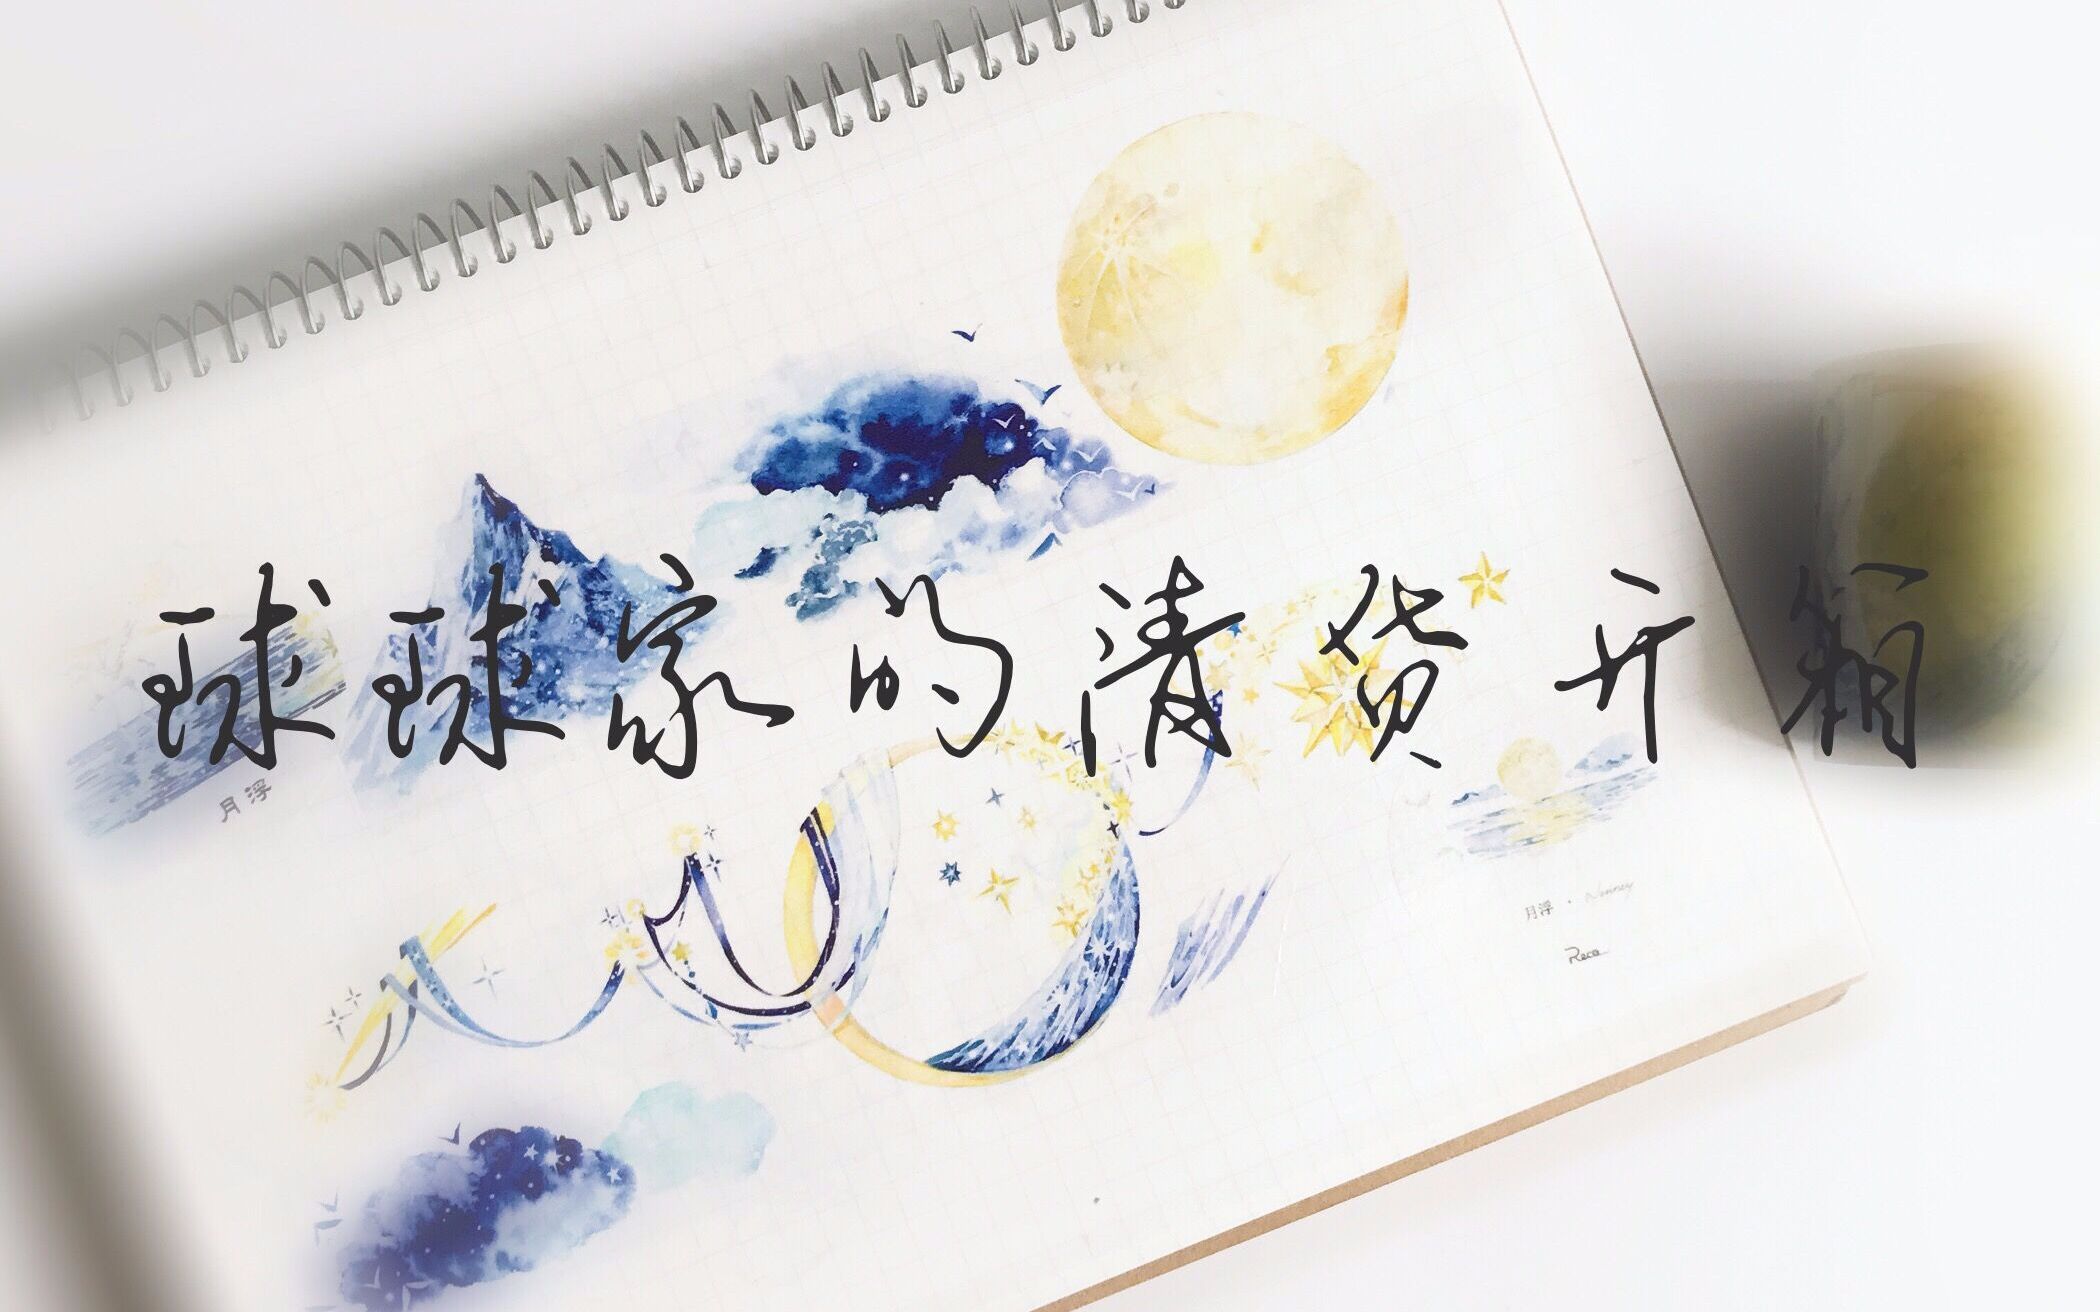 球球家的清货开箱
月浮
月浮 · Nouney
Reco